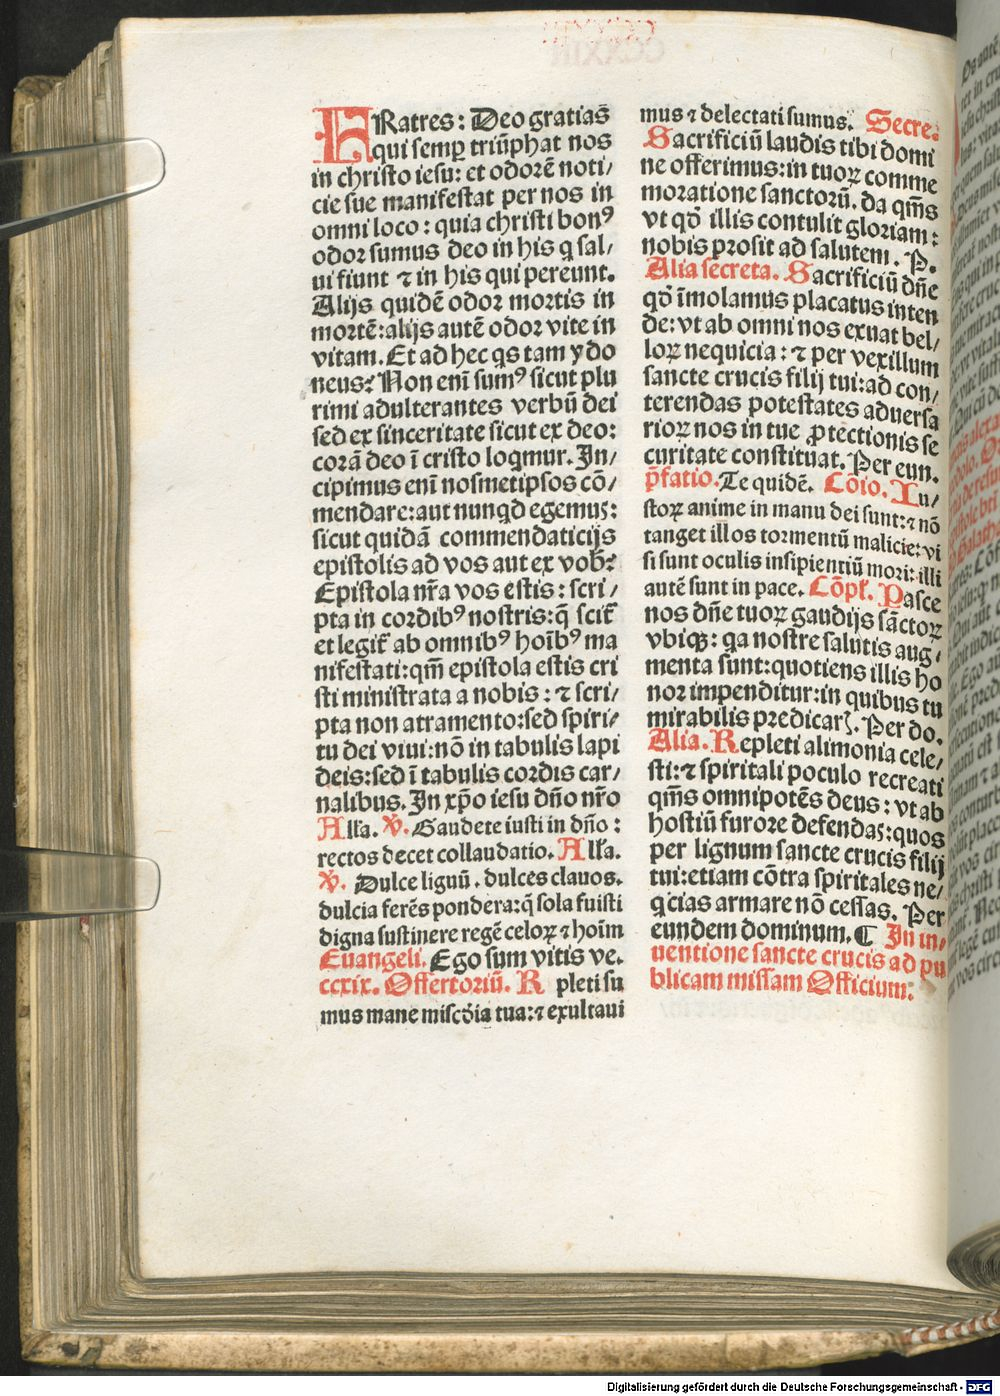 FRatres: Deo gratias̄
qui semꝑ triūphat nos
in christo iesu: et odorē noti/
cie sue manifestat per nos in
omni loco: quia christi bonꝰ
odor sumus deo in his q̄ sal/
ui fiunt ⁊ in his qui pereunt.
Alijs quidē odor mortis in
mortē: alijs autē odor vite in
vitam. Et ad hec q̄s tam ydo
neus? Non enī sumꝰ sicut plu
rimi adulterantes verbū dei
sed ex sinceritate sicut ex deo:
corā deo ī cristo loq̄mur. In/
cipimus enī nosmetipsos cō/
mendare: aut nunqd egemus:
sicut quidā commendaticijs
epistolis ad vos aut ex vob̄?
Epistola nr̄a vos estis: scri/
pta in cordibꝰ nostris: q̄ scit̄
et legit̄ ab omnibꝰ hoībꝰ ma
nifestati: qm̄ epistola estis cri
sti ministrata a nobis: ⁊ scri/
pta non atramento: sed spiri/
tu dei viui: nō in tabulis lapi
deis: sed ī tabulis cordis car/
nalibus. In xp̄o iesu dn̄o nr̄o
All'a. ℣. Gaudete iusti in dn̄o:
rectos decet collaudatio. All'a.
℣. Dulce lignū. dulces clauos.
dulcia ferēs pondera: q̄ sola fuisti
digna sustinere regē celoꝝ ⁊ hoīm
Euangeli. Ego sum vitis ve.
ccxix. Offertoriū. R pleti su
mus mane misc̄dia tua: ⁊ exultaui
mus ⁊ delectati sumus. Secre.
Sacrificiū laudis tibi domi
ne offerimus: in tuoꝝ comme
moratione sanctorū. da qm̄s
vt qd̄ illis contulit gloriam:
nobis prosit ad salutem. P.
Alia secreta. Sacrificiū dn̄e
qd̄ īmolamus placatus inten
de: vt ab omni nos exuat bel/
loꝝ nequicia: ⁊ per vexillum
sancte crucis filij tui: ad con/
terendas potestates aduersa
rioꝝ nos in tue ꝓtectionis se
curitate constituat. Per eun.
p̄fatio. Te quidē. Cōio. Iu/
stoꝝ anime in manu dei sunt: ⁊ nō
tanget illos tormentū malicie: vi
si sunt oculis insipientiū mori: illi
autē sunt in pace. Cōpl̄. Pasce
nos dn̄e tuoꝝ gaudijs sāctoꝝ
vbiqꝫ: qa nostre salutis aug/
menta sunt: quotiens illis ho
nor impenditur: in quibus tu
mirabilis predicarꝭ. Per do.
Alia. Repleti alimonia cele/
sti: ⁊ spiritali poculo recreati
qm̄s omnipotēs deus: vt ab
hostiū furore defendas: quos
per lignum sancte crucis filij
tui: etiam cōtra spiritales ne/
q̄cias armare nō cessas. Per
eundem dominum. ¶ In in/
uentione sancte crucis ad pu
blicam missam Officium:
Digitalisierung gefördert durch die Deutsche Forschungsgemeinschaft - DFG